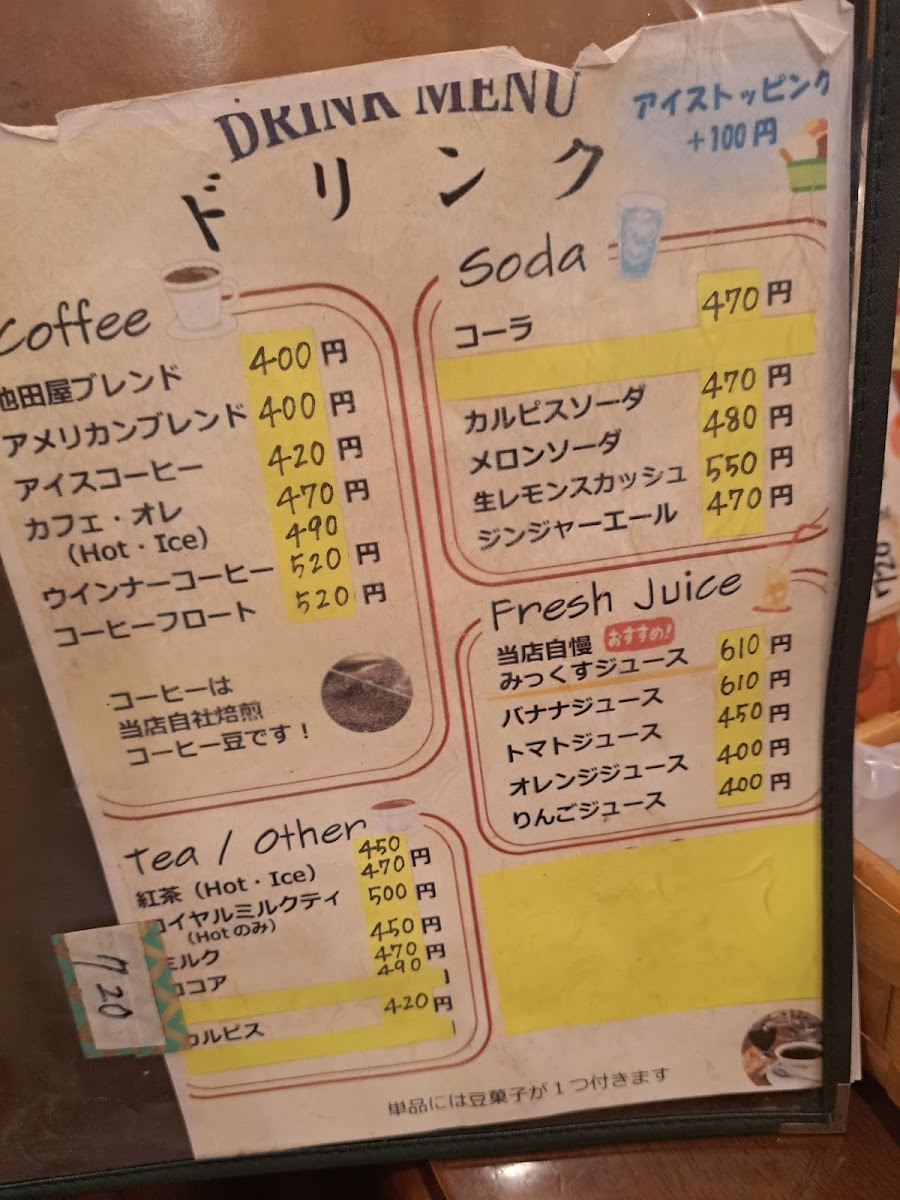 DRINK MENU
ドリンク
アイストッピング
+100円
Coffee
池田屋ブレンド 400円
アメリカンブレンド 400円
アイスコーヒー 420円
カフェ・オレ 470円
(Hot・Ice) 490
ウインナーコーヒー 520円
コーヒーフロート 520円
コーヒーは
当店自社焙煎
コーヒー豆です!
Tea / Other
450
紅茶(Hot・Ice) 470円
ロイヤルミルクティ 500円
(Hotのみ)
ミルク 450円
ココア 470円
490
カルピス 420円
Soda
コーラ 470円
カルピスソーダ 470円
メロンソーダ 480円
生レモンスカッシュ 550円
ジンジャーエール 470円
Fresh Juice
当店自慢 おすすめ!
みっくすジュース 610円
バナナジュース 610円
トマトジュース 450円
オレンジジュース 400円
りんごジュース 400円
単品には豆菓子が1つ付きます